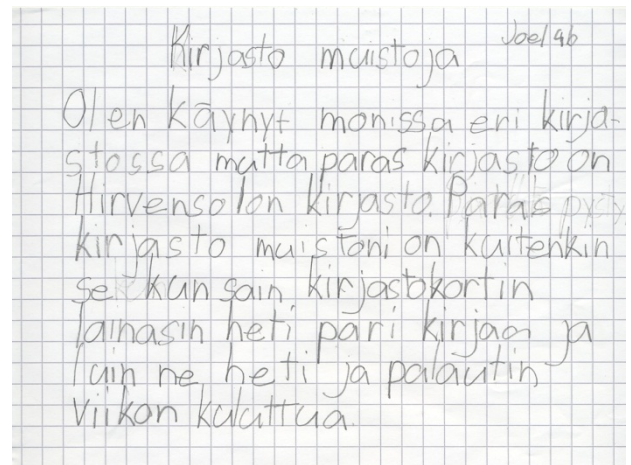 Joel 4b
Kirjasto muistoja
Olen käynyt monissa eri kirja-
stossa mutta paras kirjasto on
Hirvensalon kirjasto. Paras
kirjasto muistoni on kuitenkin
se kun sain kirjastokortin
lainasin heti pari kirjaa ja
luin ne heti ja palautin
viikon kuluttua.